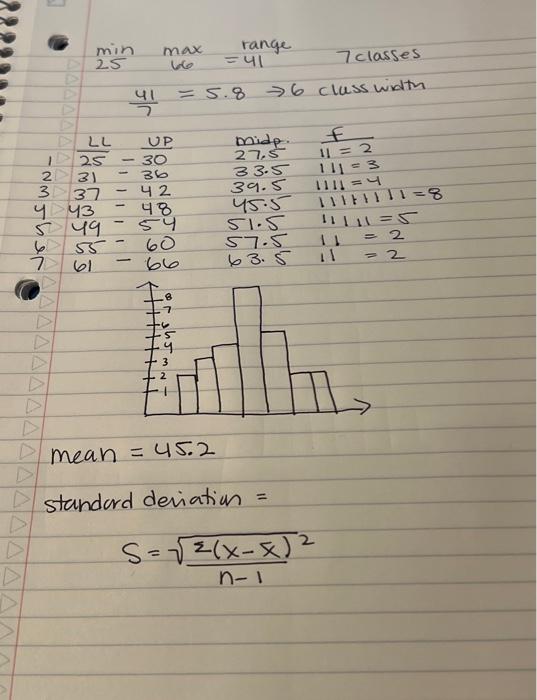 min max range
25 66 = 41 7 classes
41/7 = 5.8 → 6 class width
LL UP midp. f
1 25 - 30 27.5 11 = 2
2 31 - 36 33.5 111 = 3
3 37 - 42 39.5 1111 = 4
4 43 - 48 45.5 11111111 = 8
5 49 - 54 51.5 11111 = 5
6 55 - 60 57.5 11 = 2
7 61 - 66 63.5 11 = 2
8
7
6
5
4
3
2
1
mean = 45.2
standard deviation =
S = √Σ(x-x̄)²
n-1